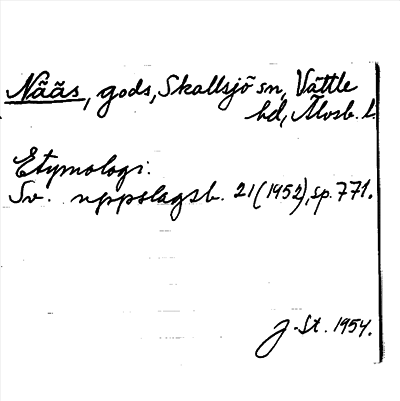 Nääs, gods, Skallsjö sn, Vättle
hd, Älvsb. l.
Etymologi:
Sv. uppslagsb. 21 (1952), sp. 771.
J. St. 1954.